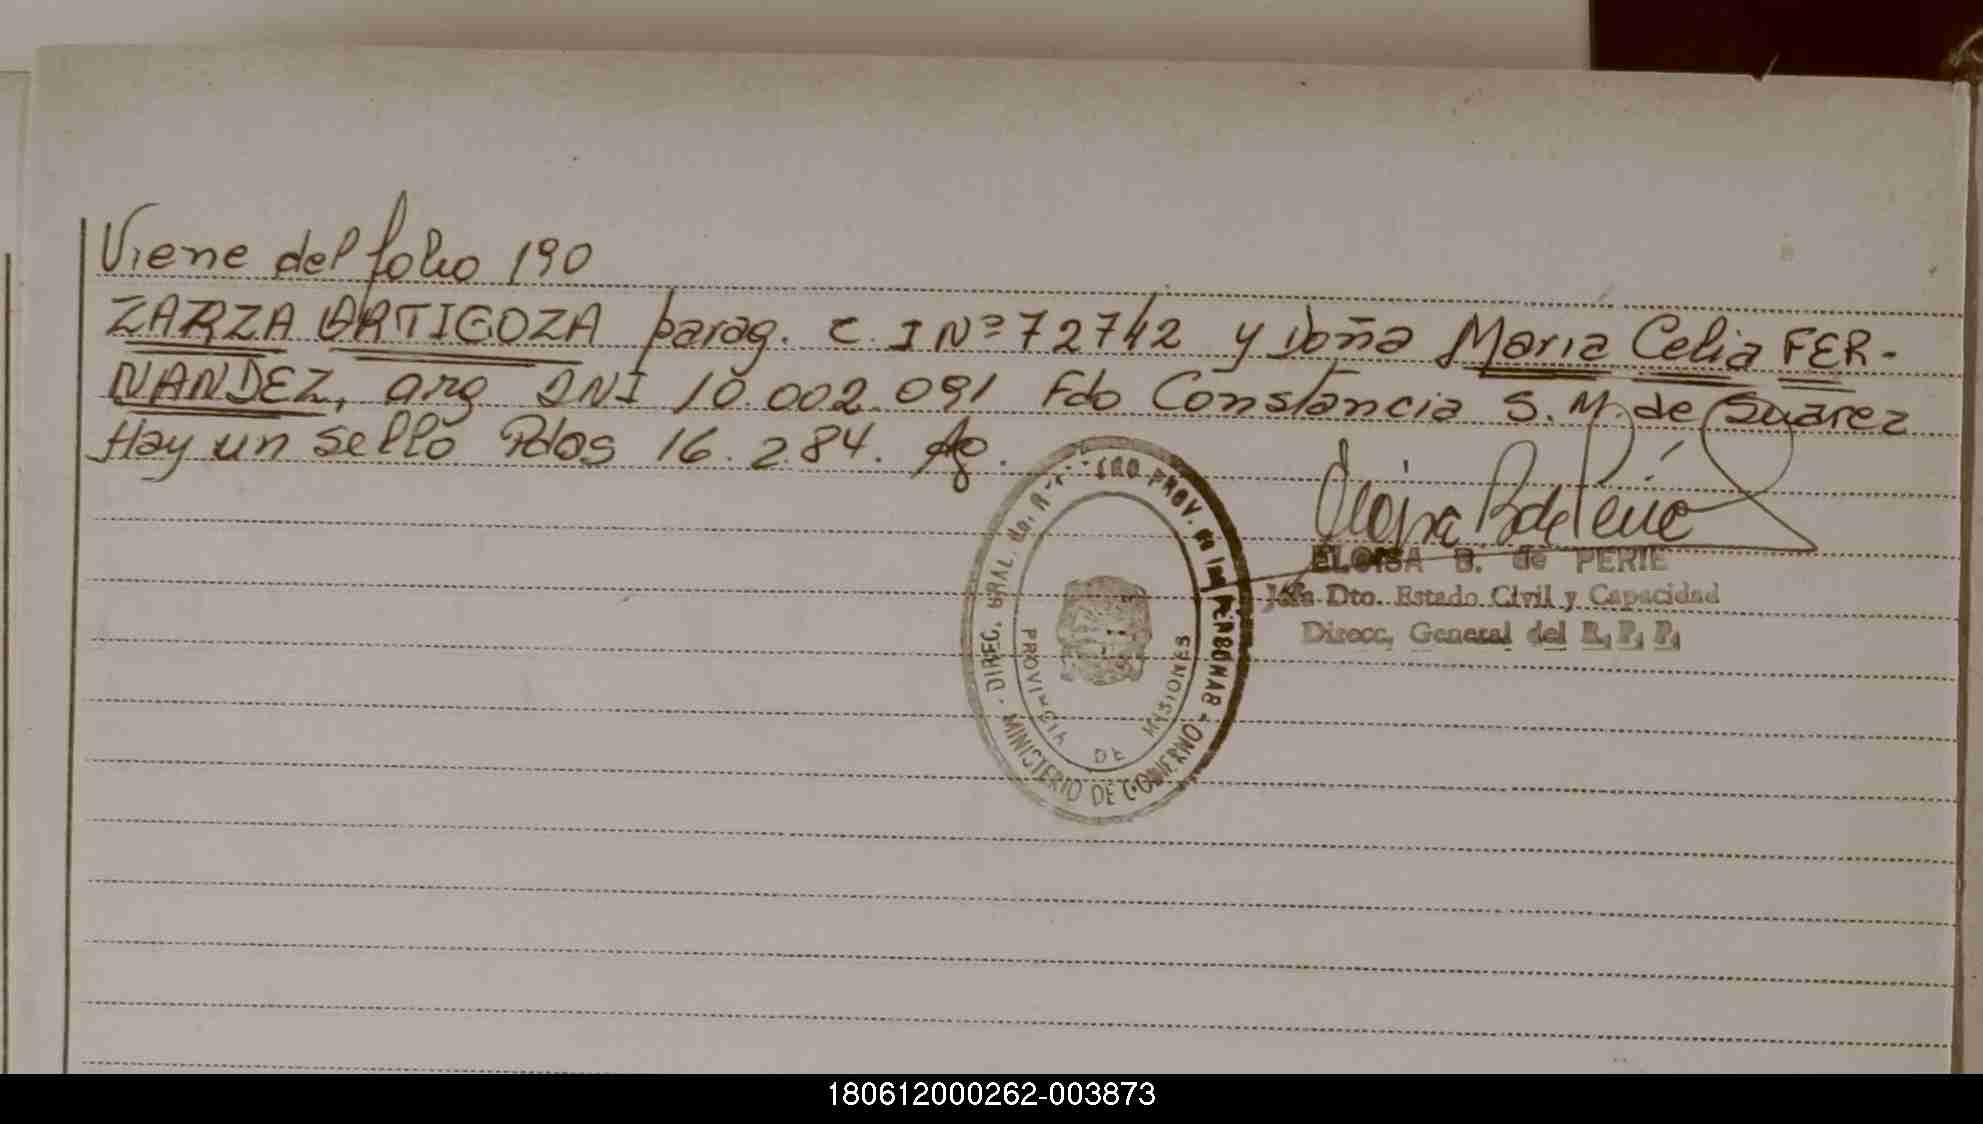 Viene del folio 190
ZARZA ARTIGOZA parag. C. I Nº 72742 y Doña Maria Celia FER-
NANDEZ, arg DNI 10.002.091 Fdo Constancia S. M. de Suarez
Hay un sello Pdas 16.2.84.
ELOISA B. de PERIE
Jefa Dto. Estado Civil y Capacidad
Direcc. General del R. P. P.
DIREC. GRAL. PROV. de las PERSONAS
MINISTERIO DE GOBIERNO
PROVINCIA DE MISIONES
180612000262-003873